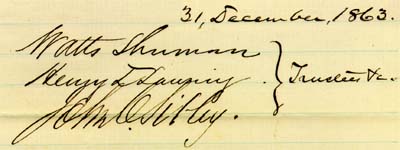 31, December, 1863.
Watts Sherman
Henry L Lansing
John C. Sibley.
Trustees &c.